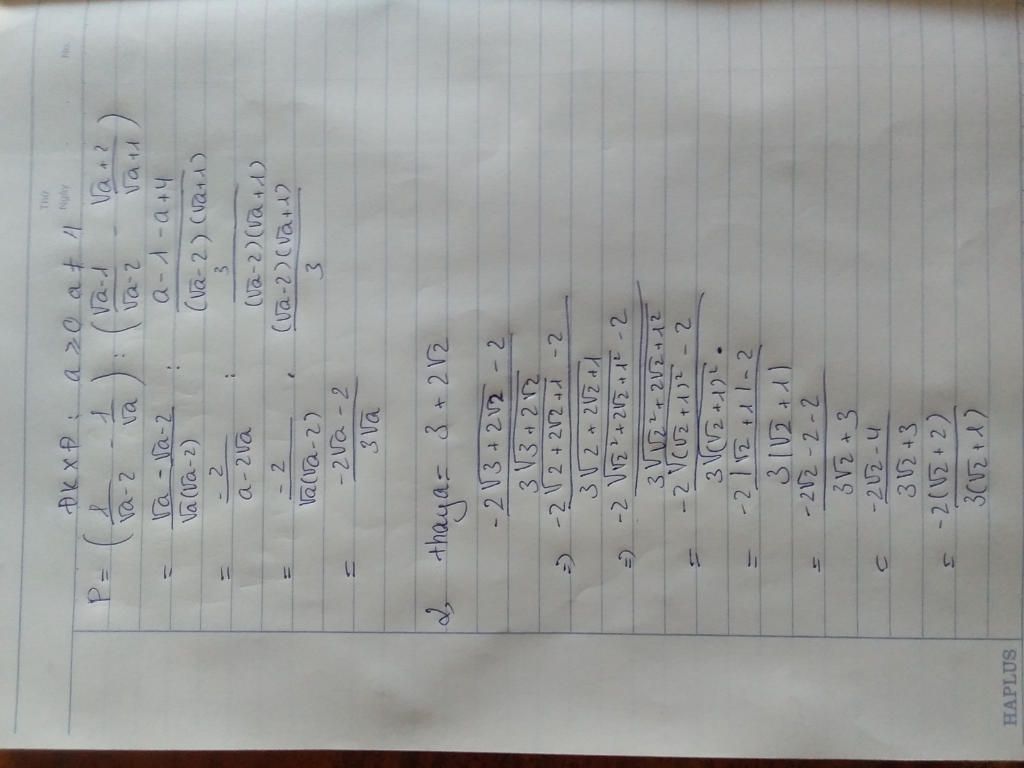 Thứ
Ngày No.
ĐKXĐ: a ≥ 0 a ≠ 4
P = (1/(√a-2) - 1/√a) : ((√a-1)/(√a-2) - (√a+2)/(√a+1))
= (√a - √a-2)/(√a(√a-2)) : (a-1-a+4)/((√a-2)(√a+1))
= -2/(a-2√a) : 3/((√a-2)(√a+1))
= -2/(√a(√a-2)) . ((√a-2)(√a+1))/3
= (-2√a-2)/(3√a)
2, thay a = 3+2√2
(-2√(3+2√2) - 2)/(3√(3+2√2))
=> (-2√(2+2√2+1) - 2)/(3√(2+2√2+1))
=> (-2√(√2²+2√2+1²) - 2)/(3√(√2²+2√2+1²))
= (-2√((√2+1)²) - 2)/(3√((√2+1)²)) .
= (-2|√2+1| - 2)/(3|√2+1|)
= (-2√2-2-2)/(3√2+3)
= (-2√2-4)/(3√2+3)
= (-2(√2+2))/(3(√2+1))
HAPLUS